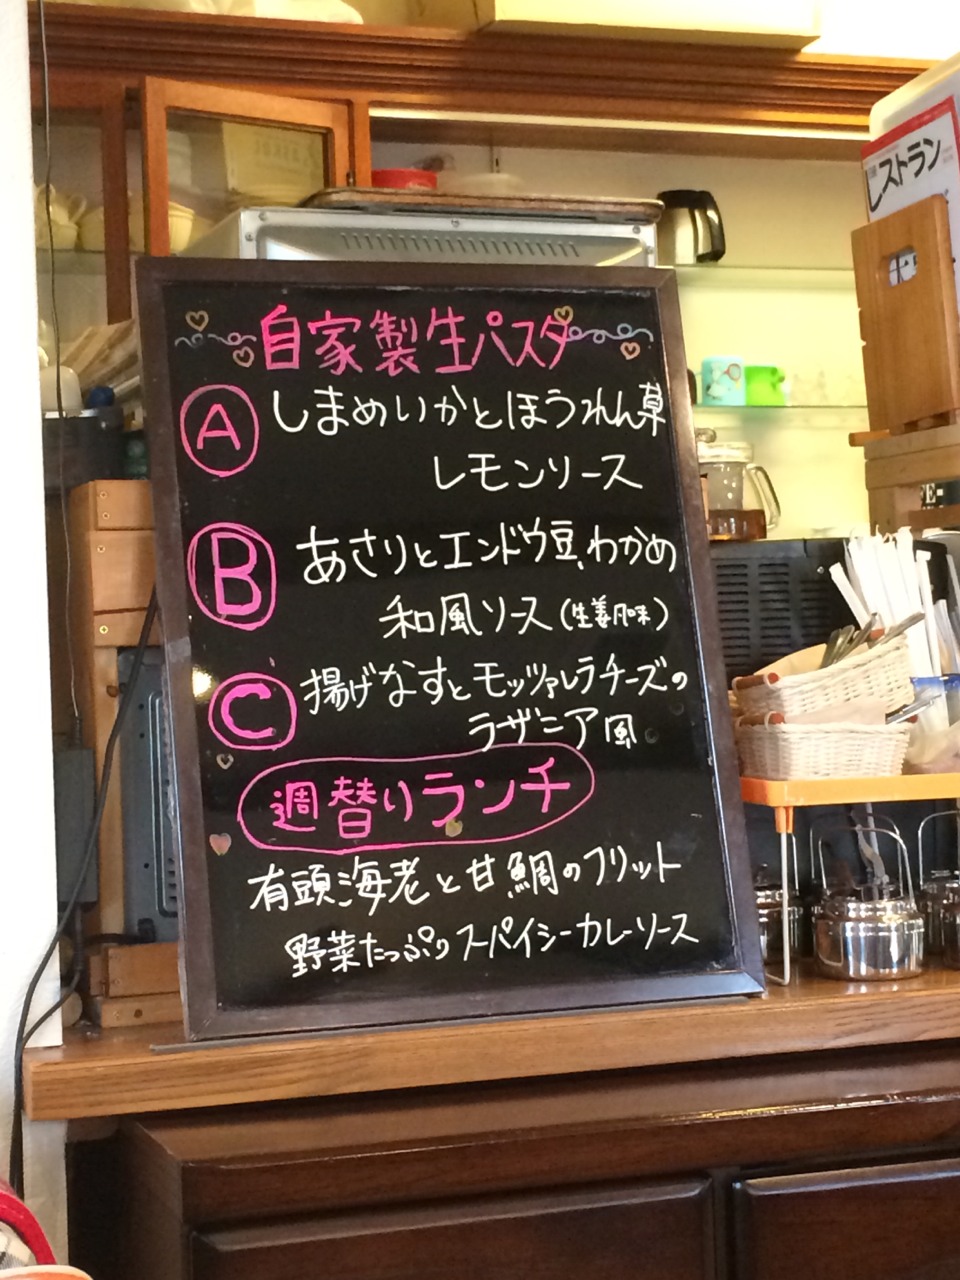 自家製生パスタ
A しまめいかとほうれん草
レモンソース
B あさりとエンドウ豆、わかめ
和風ソース(生姜風味)
C 揚げなすとモッツァレラチーズの
ラザニア風
週替りランチ
有頭海老と甘鯛のフリット
野菜たっぷりスパイシーカレーソース
レストラン